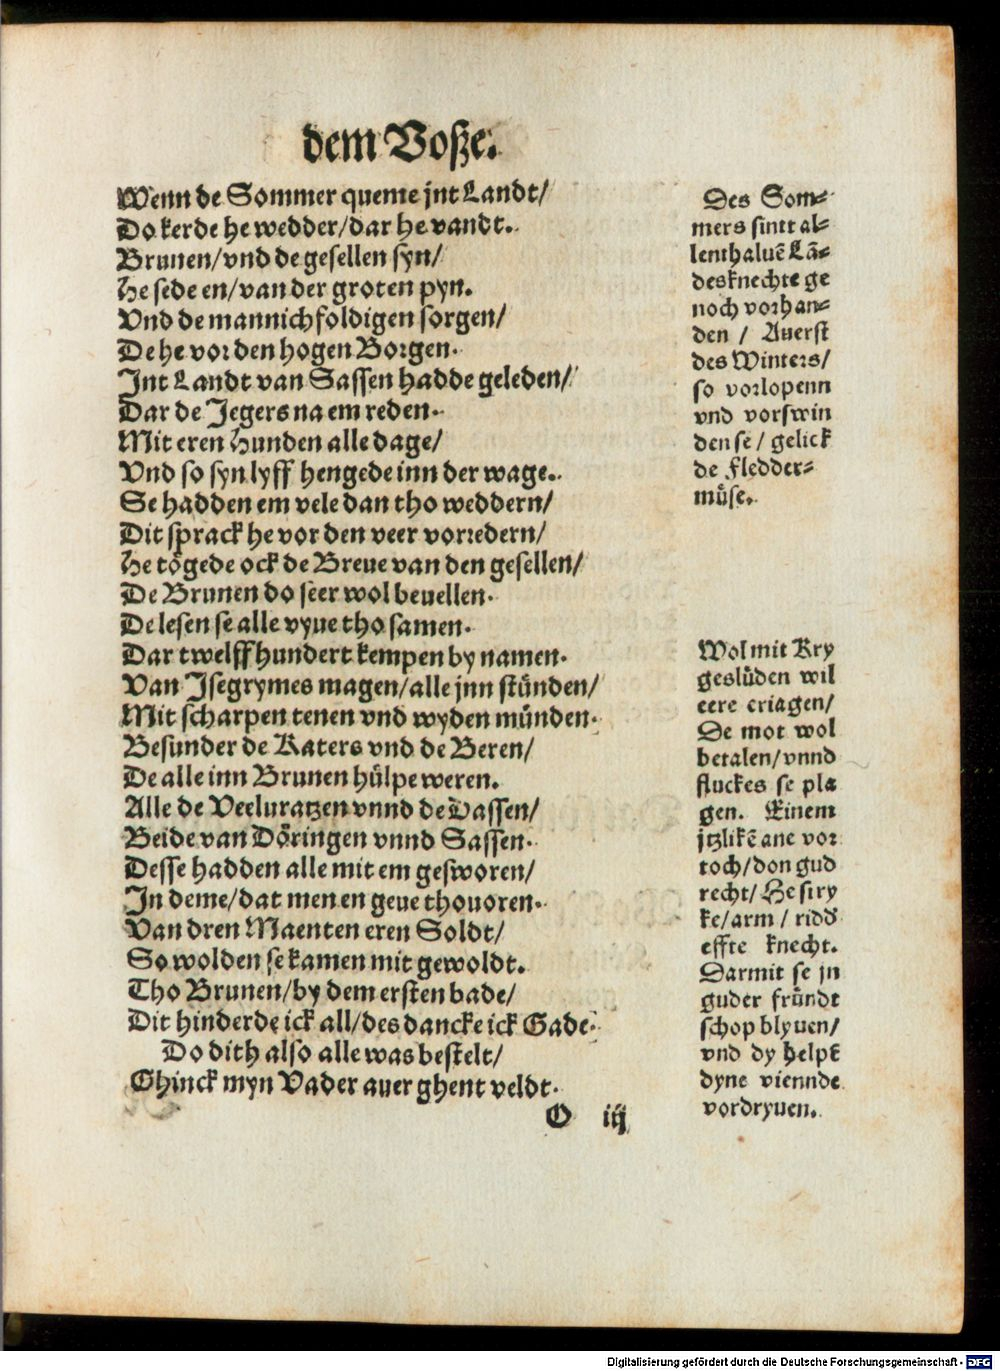 dem Voße.
Wenn de Sommer queme jnt Landt/
Do kerde he wedder/dar he vandt.
Brunen/vnd de gesellen syn/
He sede en/van der groten pyn.
Vnd de mannichfoldigen sorgen/
De he vor den hogen Borgen.
Jnt Landt van Sassen hadde geleden/
Dar de Jegers na em reden.
Mit eren Hunden alle dage/
Vnd so syn lyff hengede inn der wage.
Se hadden em vele dan tho weddern/
Dit sprack he vor den veer vorredern/
He tögede ock de Breue van den gesellen/
De Brunen do seer wol beuellen.
De lesen se alle vyue tho samen.
Dar twelffhundert kempen by namen.
Van Jsegrymes magen/alle jnn stünden/
Mit scharpen tenen vnd wyden münden.
Besunder de Katers vnd de Beren/
De alle inn Brunen hülpe weren.
Alle de Veeluratzen vnnd de Dassen/
Beide van Döringen vnnd Sassen.
Desse hadden alle mit em gesworen/
Jn deme/dat men en geue thouoren.
Van dren Maenten eren Soldt/
So wolden se kamen mit gewoldt.
Tho Brunen/by dem ersten bade/
Dit hinderde ick all/des dancke ick Gade.
Do dith also alle was bestelt/
Ghinck myn Vader auer ghent veldt.
O iij
Des Som⸗
mers sintt al⸗
lenthaluē Lā⸗
desknechte ge
noch vorhan⸗
den / Auerst
des Winters/
so vorlopenn
vnd vorswin
den se / gelick
de Fledder⸗
müse.
Wol mit Kry
geslüden wil
eere eriagen/
De mot wol
betalen/vnnd
fluckes se pla
gen. Einem
jtzlikē ane vor
toch/don gud
recht/He stry
ke/arm / ridd
effte knecht.
Darmit se jn
guder fründt
schop blyuen/
vnd dy helpē
dyne viennde
vordryuen.
Digitalisierung gefördert durch die Deutsche Forschungsgemeinschaft - DFG